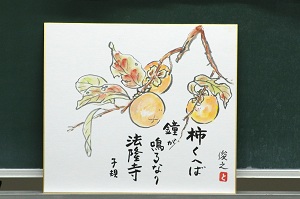 柿くへば
鐘が
鳴るなり
法隆寺
子規
俊之